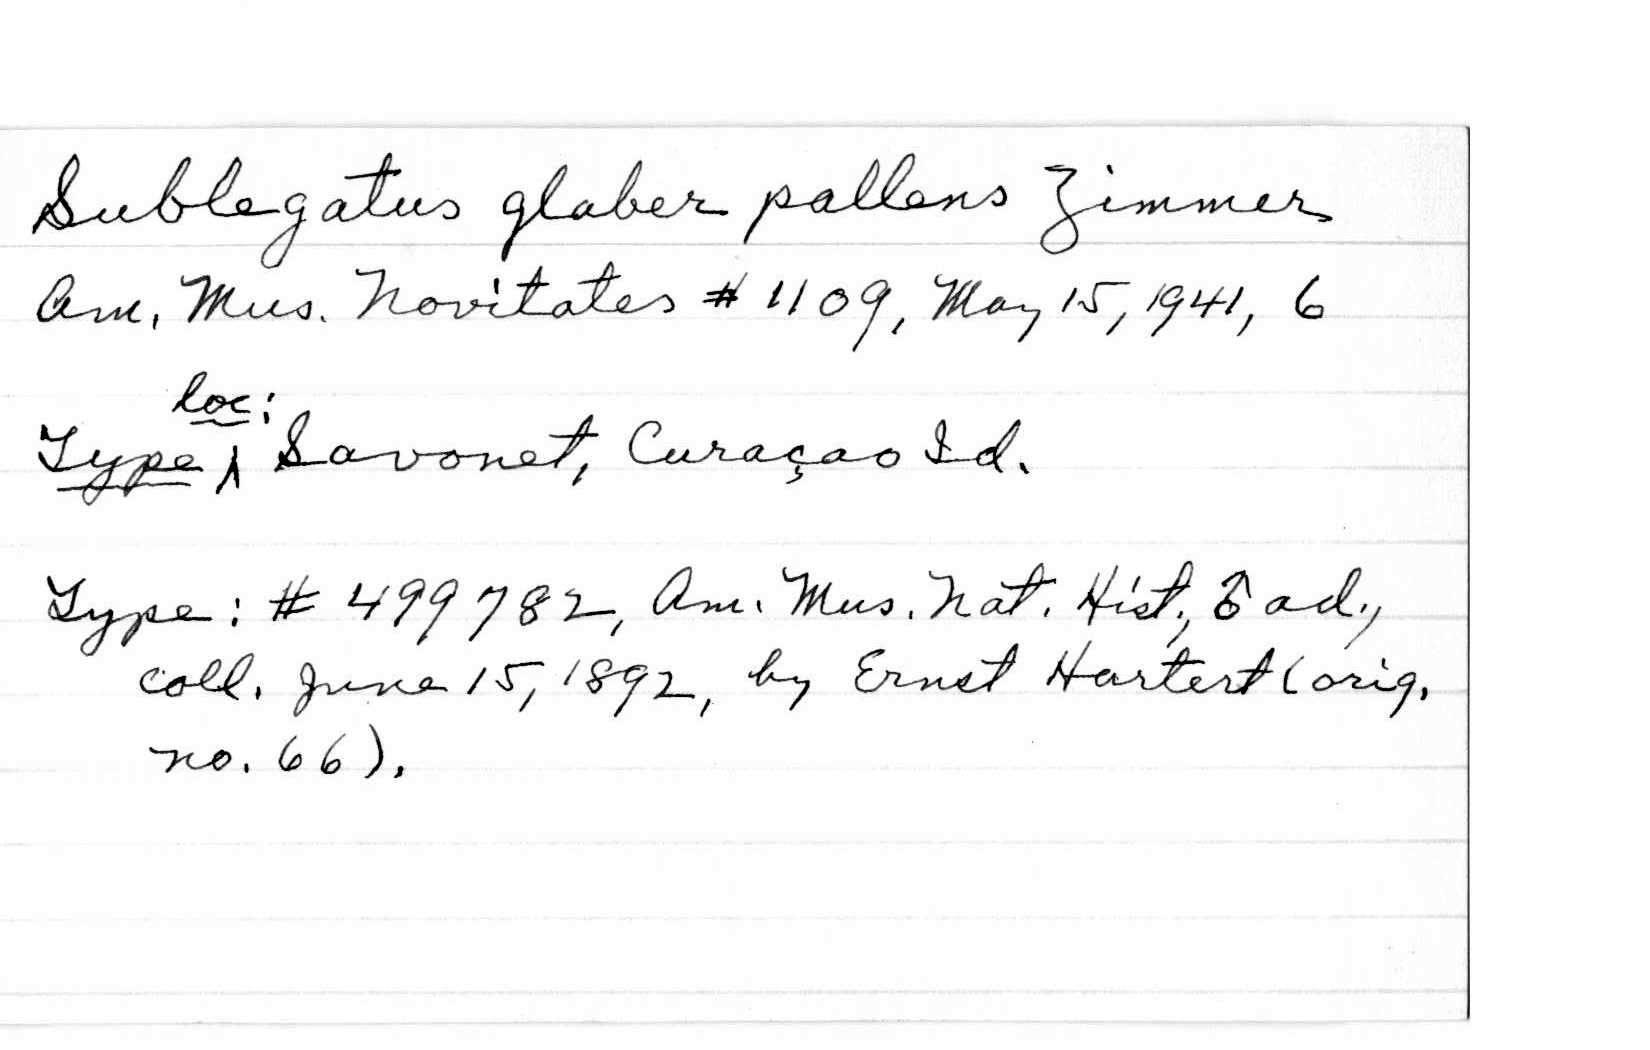 Sublegatus glaber pallens Zimmer
Am. Mus. Novitates # 1109, May 15, 1941, 6
Type loc: Savonet, Curaçao Id.
Type: # 499782, Am. Mus. Nat. Hist., ♂ ad.,
coll. June 15, 1892, by Ernst Hartert (orig.
no. 66).